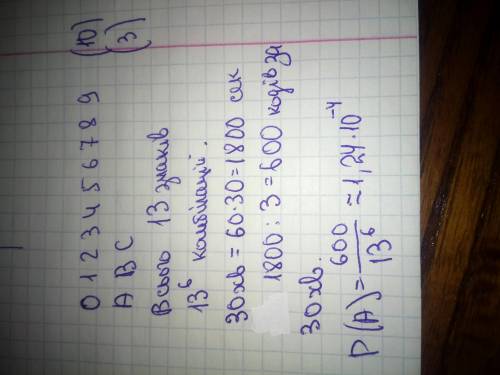 0 1 2 3 4 5 6 7 8 9 (10)
A B C (3)
Всього 13 знаків
13⁶ комбінацій.
30хв = 60·30=1800 сек
1800 : 3 = 600 кодів за
30хв.
P(A) = 600/13⁶ ≈ 1,24·10⁻⁴